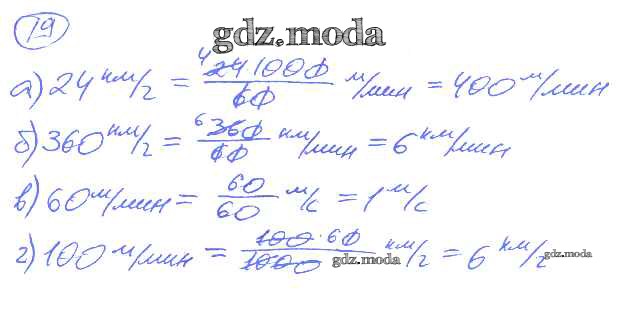 19
gdz.moda
а) 24 км/ч = 24·1000/60 м/мин = 400 м/мин
б) 360 км/ч = 360/60 км/мин = 6 км/мин
в) 60 м/мин = 60/60 м/с = 1 м/с
г) 100 м/мин = 100·60/1000 км/ч = 6 км/ч
gdz.moda
gdz.moda